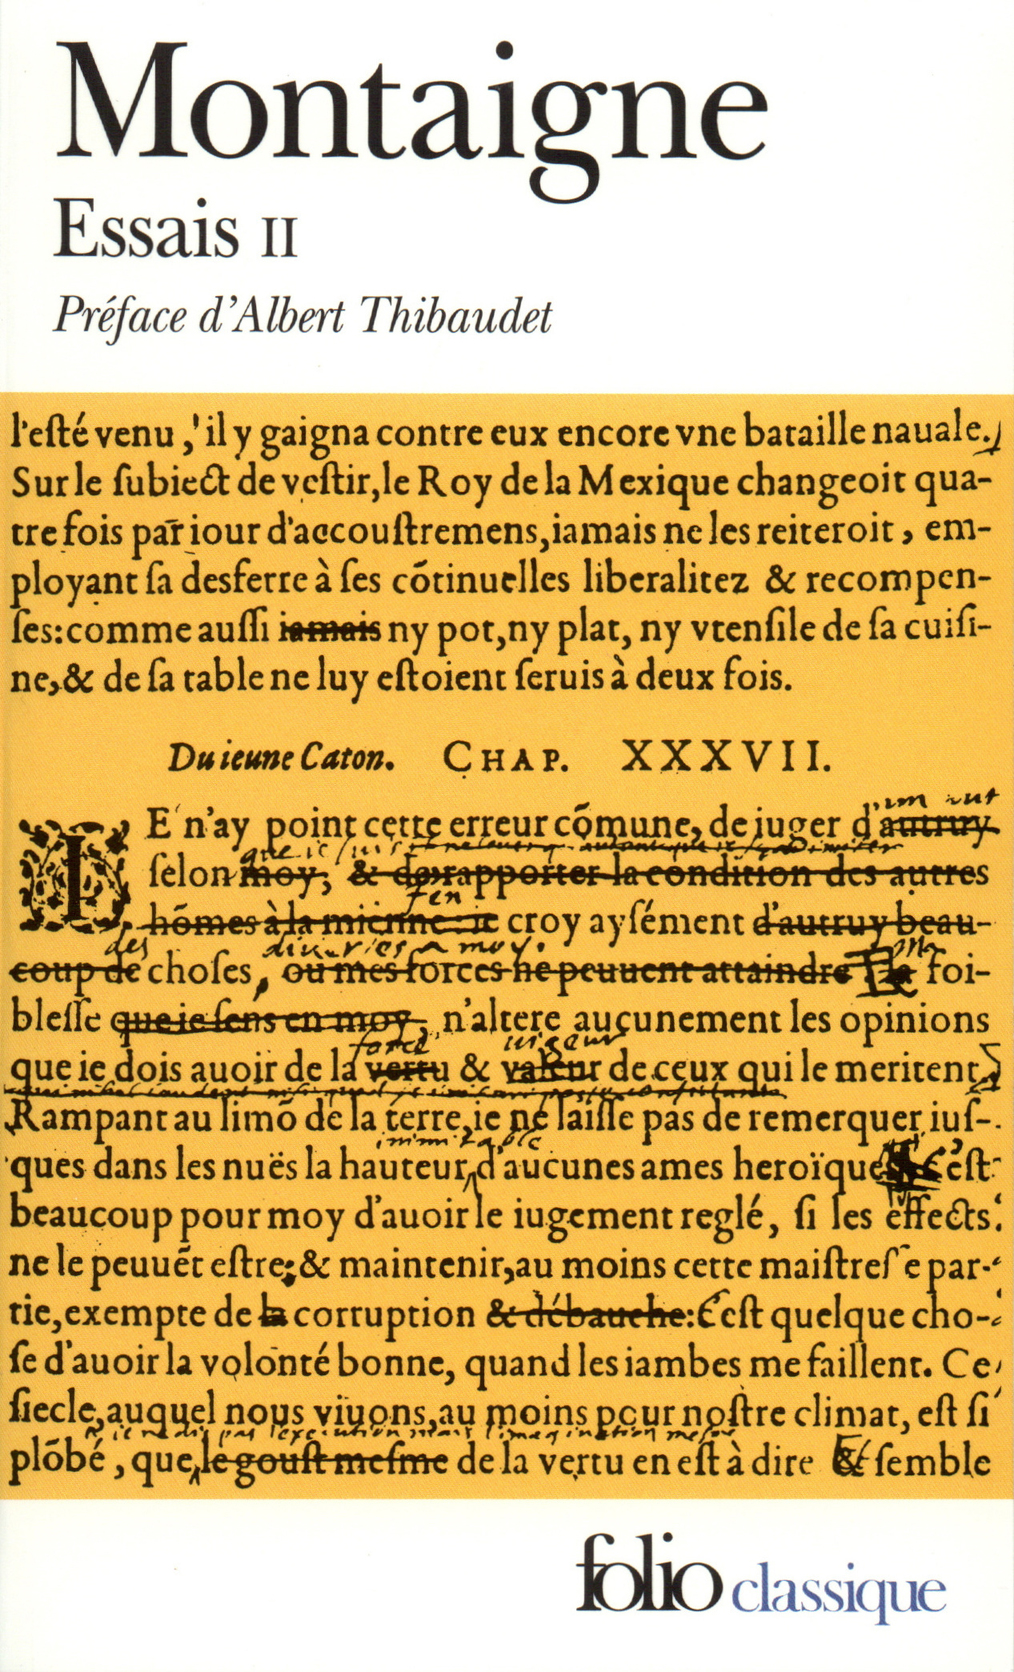 Montaigne
Essais II
Préface d'Albert Thibaudet
l'eſté venu ,'il y gaigna contre eux encore vne bataille nauale.
Sur le ſubiect de veſtir, le Roy de la Mexique changeoit qua-
tre fois par iour d'accouſtremens, iamais ne les reiteroit, em-
ployant ſa desferre à ſes cõtinuelles liberalitez & recompen-
ſes: comme auſſi iamais ny pot, ny plat, ny vtenſile de ſa cuiſi-
ne, & de ſa table ne luy eſtoient ſeruis à deux fois.
Du ieune Caton. CHAP. XXXVII.
un aut
IE n'ay point cette erreur cõmune, de iuger d'autruy
que ie suis
ſelon moy, & de rapporter la condition des autres
J'en
hõmes à la mienne: ie croy ayſément d'autruy beau-
des diverses a moy.
coup de choſes, ou mes forces ne peuuent attaindre foi-
bleſſe que ie ſens en moy, n'altere aucunement les opinions
force uigeur
que ie dois auoir de la vertu & valeur de ceux qui le meritent
Rampant au limõ de la terre, ie ne laiſſe pas de remerquer iuſ-
inimitable
ques dans les nuës la hauteur d'aucunes ames heroïques C'eſt
beaucoup pour moy d'auoir le iugement reglé, ſi les effects
ne le peuuẽt eſtre; & maintenir, au moins cette maiſtreſſe par-
tie, exempte de la corruption & débauche: C'eſt quelque cho-
ſe d'auoir la volonté bonne, quand les iambes me faillent. Ce
ſiecle, auquel nous viuons, au moins pour noſtre climat, eſt ſi
ie ne dis pas l'execution mais l'imagination mesme
plõbé, que le gouſt meſme de la vertu en eſt à dire & ſemble
folio classique